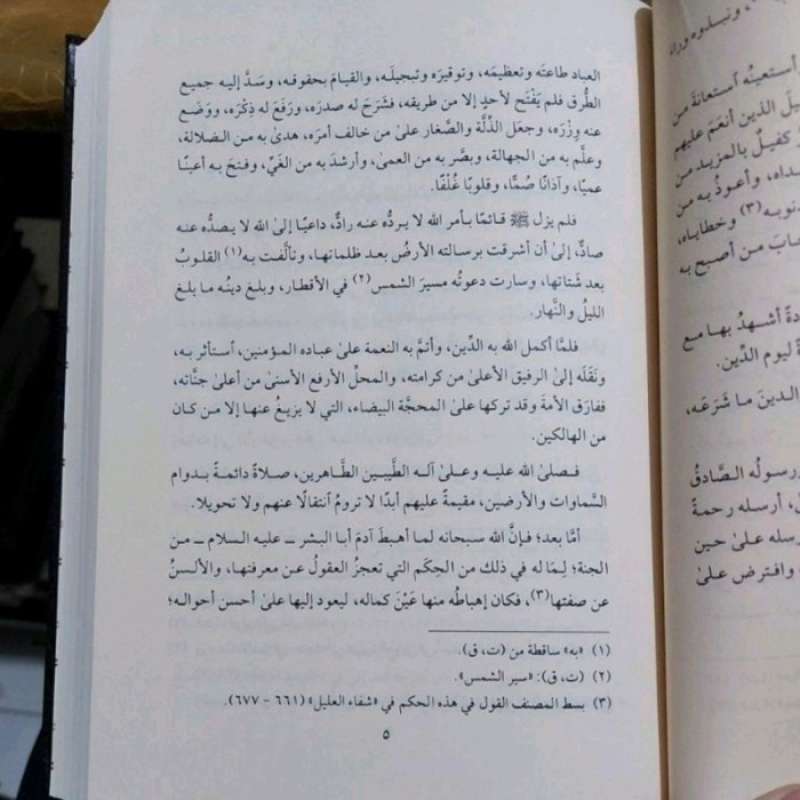 ، ونبلوه وراء
أستعينُه استعانةَ من
الذين أنعَم عليهم
كفيلٌ بالمزيد من
وأعوذُ به من
(٣) وخطاياه،
من أصبح به
أشهدُ بها مع
ليوم الدِّين.
الدينَ ما شَرَعَه،
ورسولُه الصَّادقُ
، أرسله رحمةً
علىٰ حين
وافترض علىٰ
العباد طاعتَه وتعظيمَه، وتوقيرَه وتبجيلَه، والقيامَ بحقوقه، وسَدَّ إليه جميع
الطُّرق فلم يَفْتَح لأحدٍ إلا من طريقه، فشَرَحَ له صدرَه، ورَفَعَ له ذِكْرَه، ووَضَع
عنه وِزْرَه، وجعَل الذِّلَّة والصَّغار علىٰ من خالف أمرَه، هدىٰ به من الضلالة،
وعلَّم به من الجهالة، وبصَّر به من العمىٰ، وأرشدَ به من الغَيِّ، وفتحَ به أعينًا
عميًا، وآذانًا صُمًّا، وقلوبًا غُلْفًا.
فلم يزل ﷺ قائمًا بأمر الله لا يردُّه عنه رادٌّ، داعيًا إلىٰ الله لا يصدُّه عنه
صادٌّ، إلىٰ أن أشرقت برسالته الأرضُ بعد ظلماتها، وتألَّفت به(١) القلوبُ
بعد شَتاتها، وسارت دعوتُه مسيرَ الشمس(٢) في الأقطار، وبلغ دينُه ما بلغ
الليلُ والنَّهار.
فلمَّا أكمل الله به الدِّين، وأتمَّ به النعمة علىٰ عباده المؤمنين، استأثر به،
ونَقَلَه إلىٰ الرفيق الأعلىٰ من كرامته، والمحلِّ الأرفع الأسنىٰ من أعلىٰ جنَّاته،
ففارق الأمةَ وقد تركها علىٰ المحجَّة البيضاء، التي لا يزيغُ عنها إلا من كان
من الهالكين.
فصلىٰ الله عليه وعلىٰ آله الطَّيبين الطَّاهرين، صلاةً دائمةً بدوام
السَّماوات والأرضين، مقيمةً عليهم أبدًا لا ترومُ انتقالًا عنهم ولا تحويلا.
أمَّا بعد؛ فإنَّ الله سبحانه لما أهبطَ آدمَ أبا البشر ــ عليه السلام ــ من
الجنة؛ لِمَا له في ذلك من الحِكَم التي تعجزُ العقولُ عن معرفتها، والألسنُ
عن صفتها(٣)، فكان إهباطُه منها عَيْنَ كماله، ليعود إليها علىٰ أحسن أحواله؛
(١) «به» ساقطة من (ت، ق).
(٢) (ت، ق): «سير الشمس».
(٣) بسط المصنف القول في هذه الحكم في «شفاء العليل» (٦٦١ - ٦٧٧).
٥